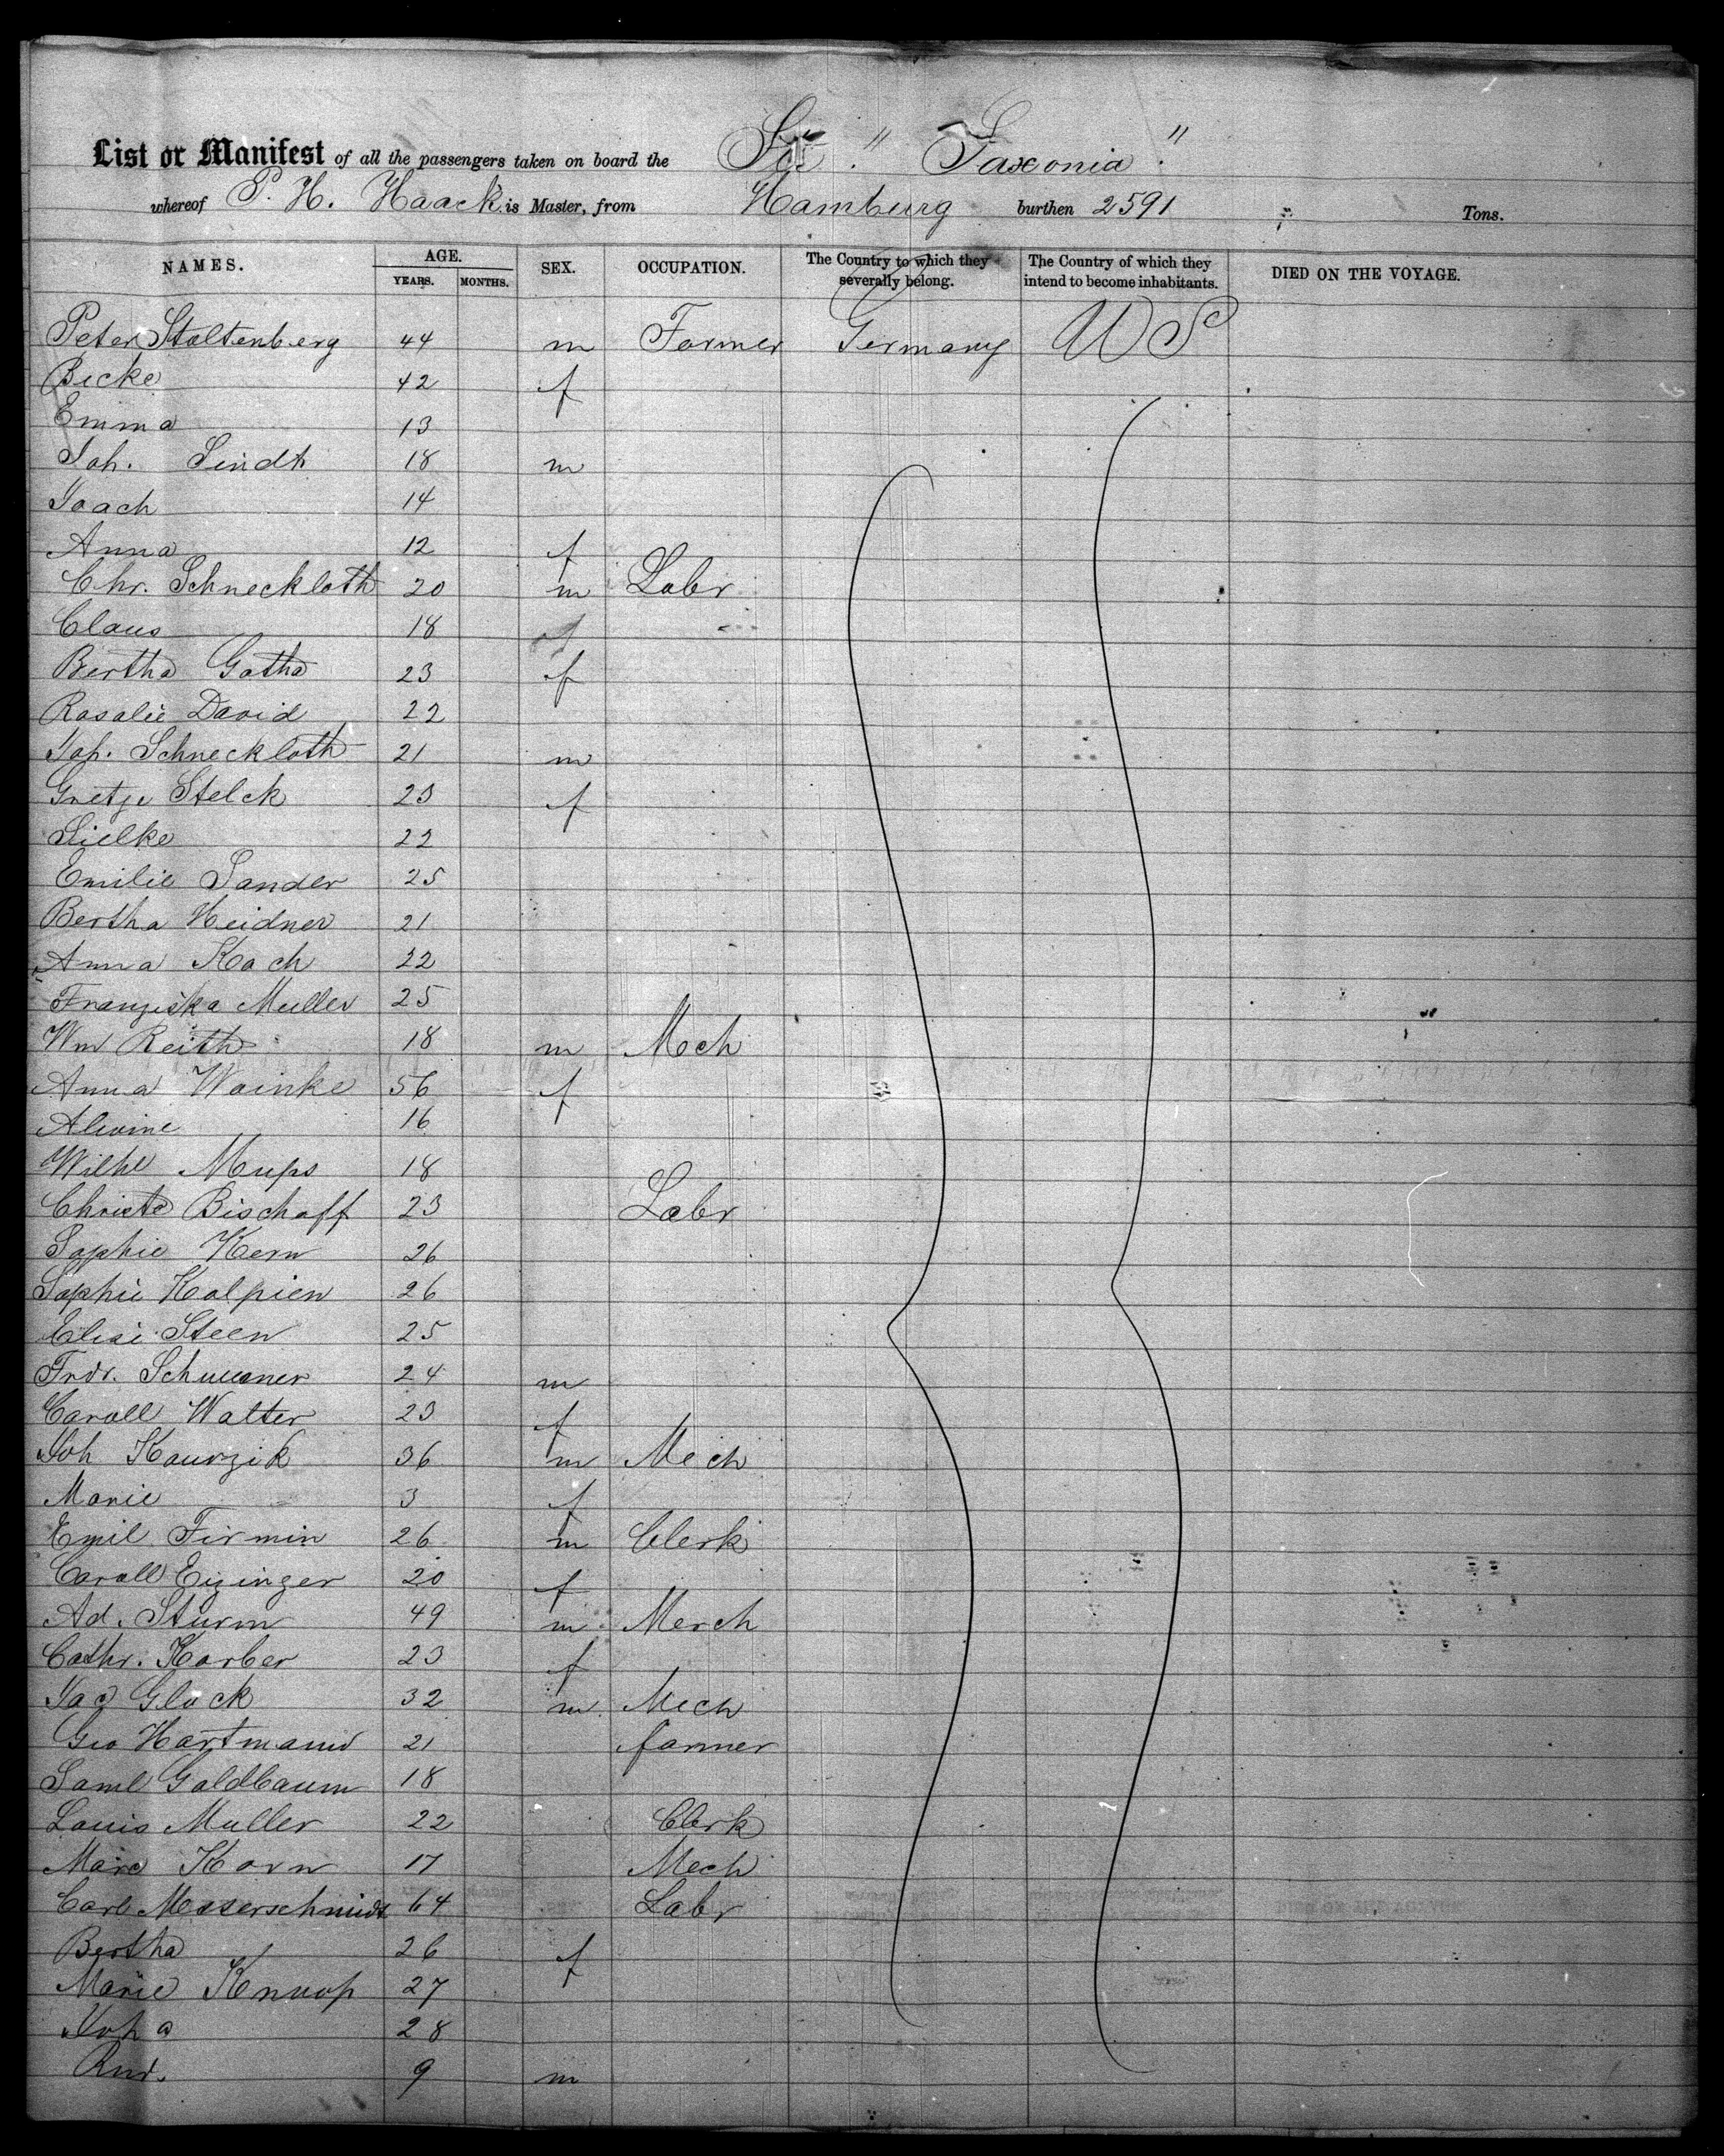 List or Manifest of all the passengers taken on board the Str. " Saxonia "
whereof P. H. Haack is Master, from Hamburg burthen 2591 Tons.
NAMES. AGE. YEARS. MONTHS. SEX. OCCUPATION. The Country to which they severally belong. The Country of which they intend to become inhabitants. DIED ON THE VOYAGE.
Peter Stoltenberg 44 m Farmer Germany US
Bicke 42 f
Emma 13
Joh. Sindt 18 m
Joach 14
Anna 12 f
Chr. Schneckloth 20 m Labr
Claus 18
Bertha Gotha 23 f
Rosalie David 22
Joh. Schneckloth 21 m
Gretje Stelck 23 f
Sielke 22
Emilie Sander 25
Bertha Heidner 21
Anna Koch 22
Franziska Muller 25
Wm Reith 18 m Mech
Anna Woinke 56 f
Alwine 16
Wilhl 18
Christe Bischoff 23 Labr
Sophie Kern 26
Sophie Kolpien 26
Elise Steen 25
Frdr. 24 m
Caroll Walter 23 f
Joh Kaurzik 36 m Mech
Marie 3 f
Emil Firmin 26 m Clerk
Caroll Eizinger 20 f
Ad. Sturm 49 m Merch
Cathr. Korber 23 f
Jac Gluck 32 m Mech
Geo Hartmann 21 farmer
Saml Goldbaum 18
Louis Muller 22 Clerk
Marc Korn 17 Mech
Carl Messerschmidt 64 Labr
Bertha 26 f
Marie Knoop 27
Joha 28
Rud. 9 m